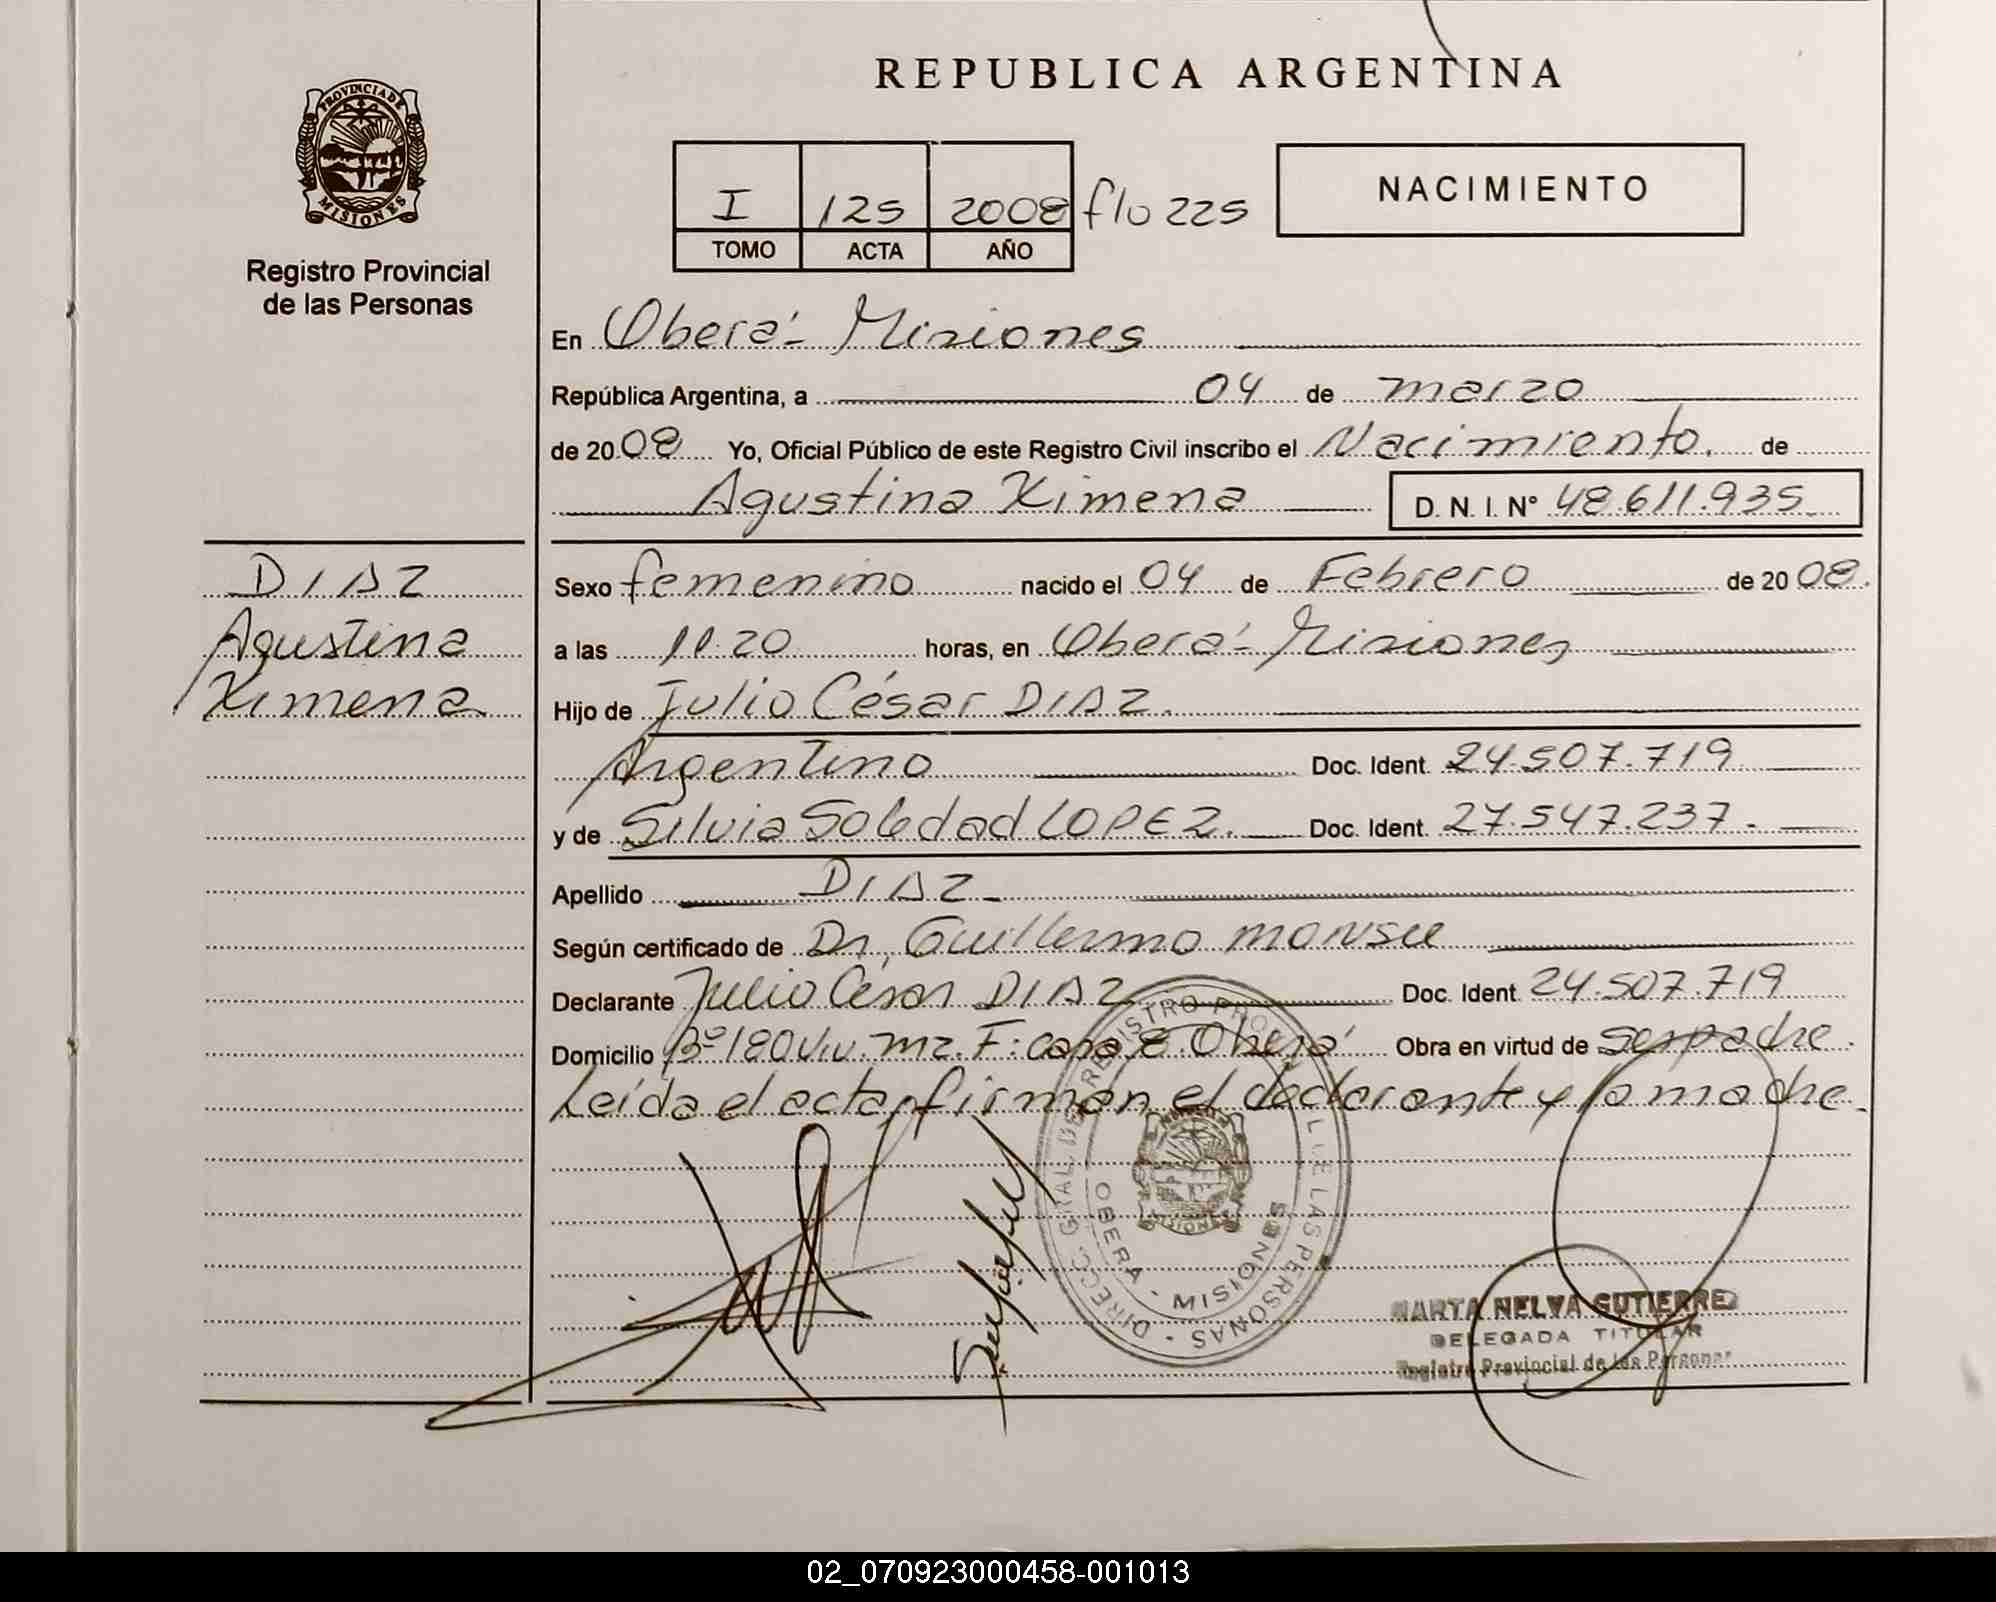 REPUBLICA ARGENTINA
PROVINCIA DE
MISIONES
Registro Provincial
de las Personas
I 125 2008 flo 225
TOMO ACTA AÑO
NACIMIENTO
En Oberá - Misiones
República Argentina, a 04 de marzo
de 2008 Yo, Oficial Público de este Registro Civil inscribo el Nacimiento. de
Agustina Ximena D. N. I. Nº 48.611.935
DIAZ
Agustina
Ximena
Sexo femenino nacido el 04 de Febrero de 2008.
a las 11.20 horas, en Oberá - Misiones
Hijo de Julio César DIAZ.
Argentino Doc. Ident. 24.507.719
y de Silvia Soledad LOPEZ. Doc. Ident. 27.547.237.
Apellido DIAZ
Según certificado de Dr. Guillermo MONSU
Declarante Julio César DIAZ Doc. Ident. 24.507.719
Domicilio Bº 180 Viv. mz. F: casa 8. Oberá Obra en virtud de ser padre.
Leída el acta, firman el declarante y la madre.
DIRECC. GRAL. DEL REGISTRO PROVINCIAL DE LAS PERSONAS
OBERA - MISIONES
MISIONES
MARTA NELVA GUTIERREZ
DELEGADA TITULAR
Registro Provincial de las Personas
02_070923000458-001013